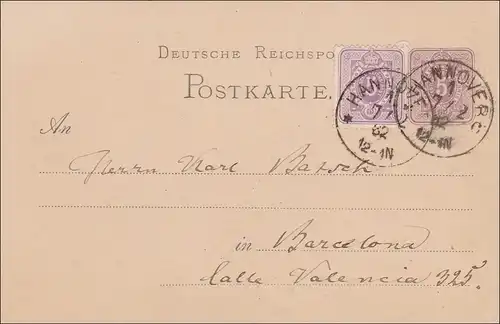 DEUTSCHE REICHSPO
POSTKARTE.
* HANNOVE
1
7
82
12-1N
HANNOVER C
1
7
82
12-1N
An
Herrn Karl Batsch
in Barcelona
Calle Valencia 325.